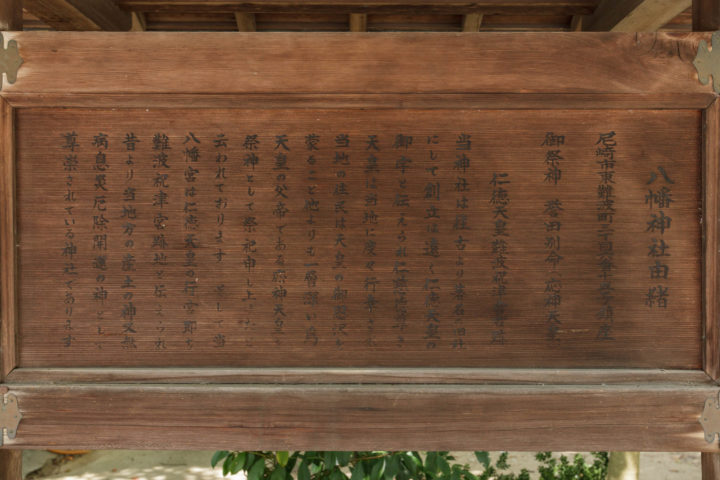 八幡神社由緒
尼崎市東難波町 鎮座
御祭神 誉田別命 応神天皇
仁徳天皇難波祝津宮跡
当神社は往古より著名の旧社
にして創立は遠く仁徳天皇の
御宇と伝えられ仁徳
天皇は当地に度々行幸され
当地の住民は天皇の御恩沢を
蒙ること他よりも一層深い為
天皇の父帝である応神天皇を
祭神として祭祀申し上
云われております 当
八幡宮は仁徳天皇の行宮即ち
難波祝津宮跡地と伝えられ
昔より当地方の産土の神又無
病息災厄除開運の神として
尊崇されている神社であります